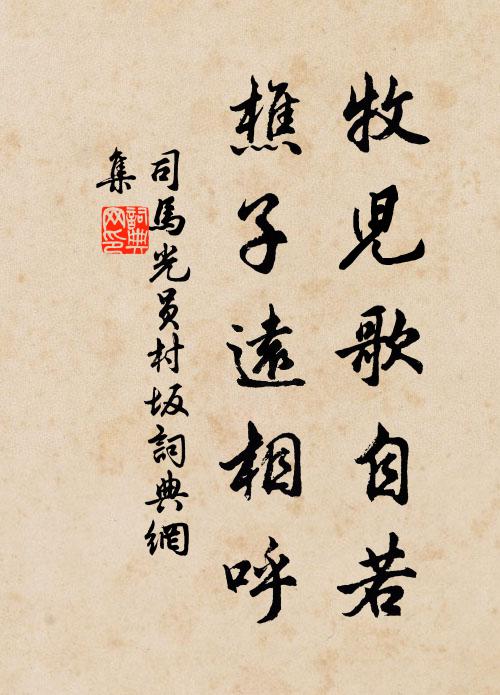 牧兒歌自若
樵子遠相呼
司馬光員村坂詞典網
集
詞典网印